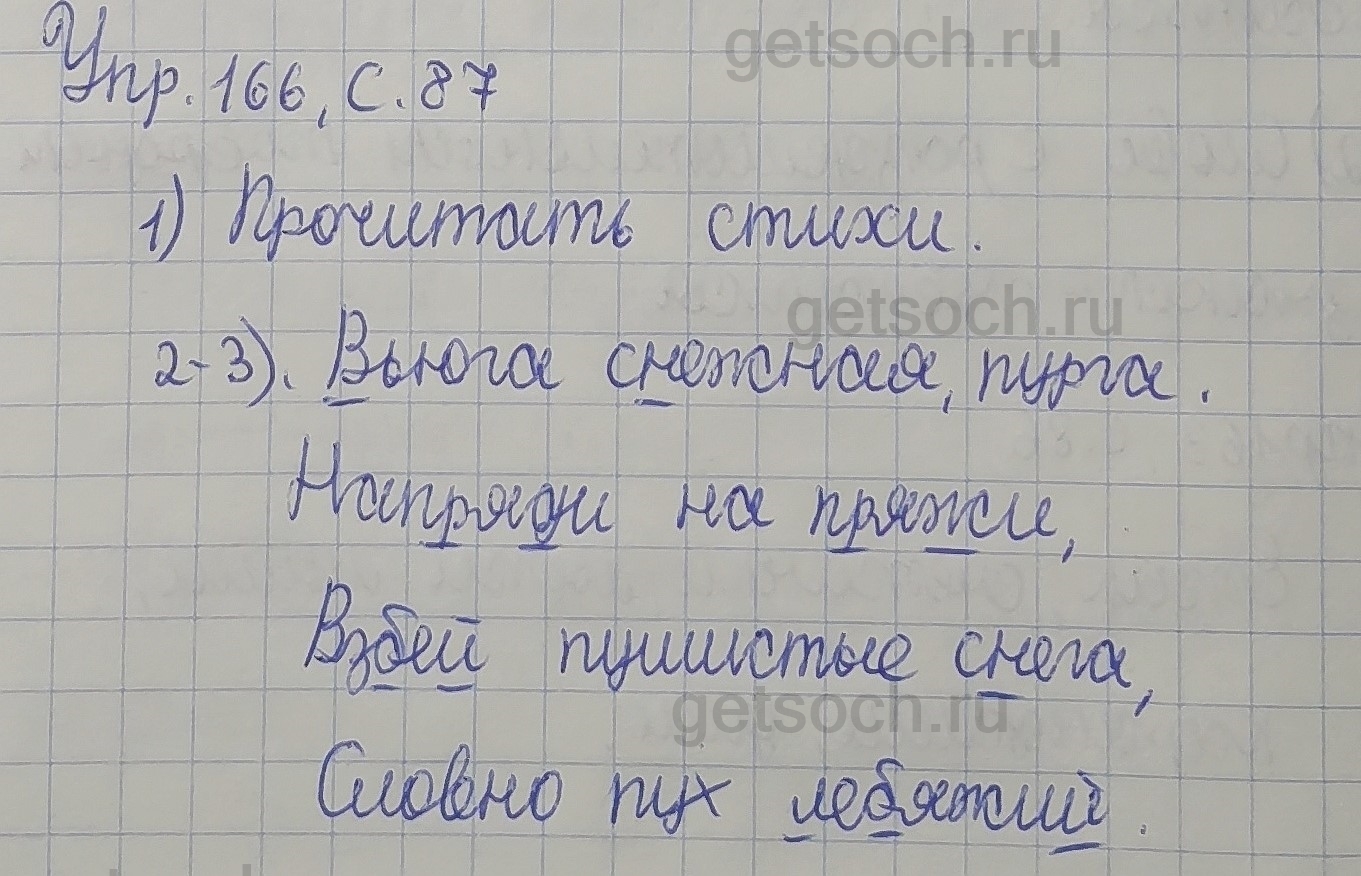 getsoch.ru
Упр. 166, с. 87
1) Прочитать стихи.
getsoch.ru
2-3). Вьюга снежная, пурга.
Напряди на пряжи,
Взбей пушистые снега,
getsoch.ru
Словно пух лебяжий.